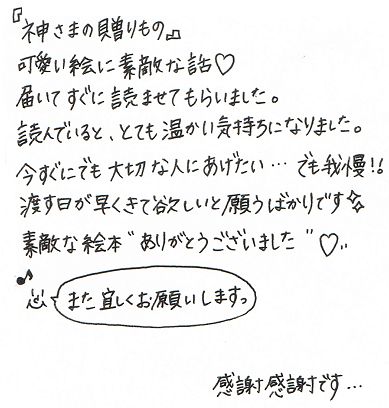 『神さまの贈りもの』
可愛い絵に素敵な話♡
届いてすぐに読ませてもらいました。
読んでいると、とても温かい気持ちになりました。
今すぐにでも大切な人にあげたい…でも我慢!!
渡す日が早くきて欲しいと願うばかりです☆
素敵な絵本"ありがとうございました"♡..
♪
また宜しくお願いしますっ
感謝感謝です…